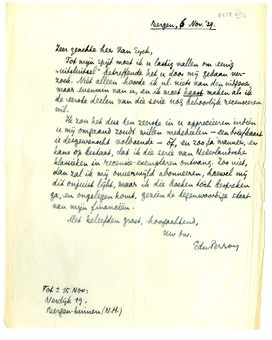 Bergen, 6 Nov. '29.
Zeer geachte heer Van Eyck,
Tot mijn spijt moet ik u lastig vallen om eenig
"uitsluitsel" betreffende het u door mij gedaan ver-
zoek. Niet alleen hoorde ik nl. niets van den uitgever,
maar evenmin van u, en ik moet haast maken als ik
de eerste deelen van die serie nog behoorlijk recenseeren
wil.
Ik zou het dus ten zeerste in u appreciëeren indien
u mij omgaand zoudt willen mededeelen – een briefkaart
is desgewenscht voldoende – of, en zoo ja wanneer, er
kans op bestaat, dat ik die serie van Nederlandsche
klassieken in recensie-exemplaren ontvang. Zoo niet,
dan zal ik mij onverwijld abonneeren, hoewel mij
dit onjuist lijkt, waar ik die boeken toch bespreken
ga, en ongelegen komt, gezien de tegenwoordige staat
van mijn financiën.
Met beleefden groet, hoogachtend,
Uw dw.
EduPerron
Tot ± 15 Nov:
Nesdijk 19.
Bergen-binnen (N.H.)